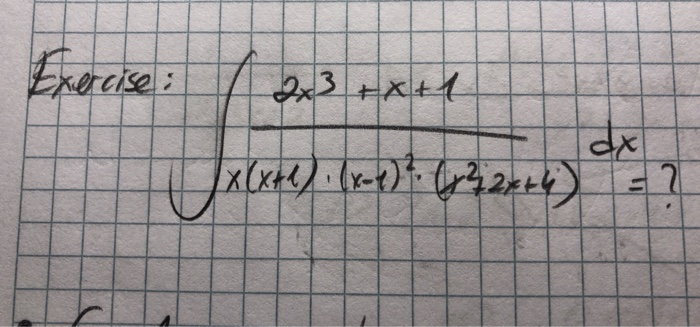 Exercise: ∫ 2x³ + x + 1
dx
x(x+1) · (x-1)² · (x²+2x+4) = ?